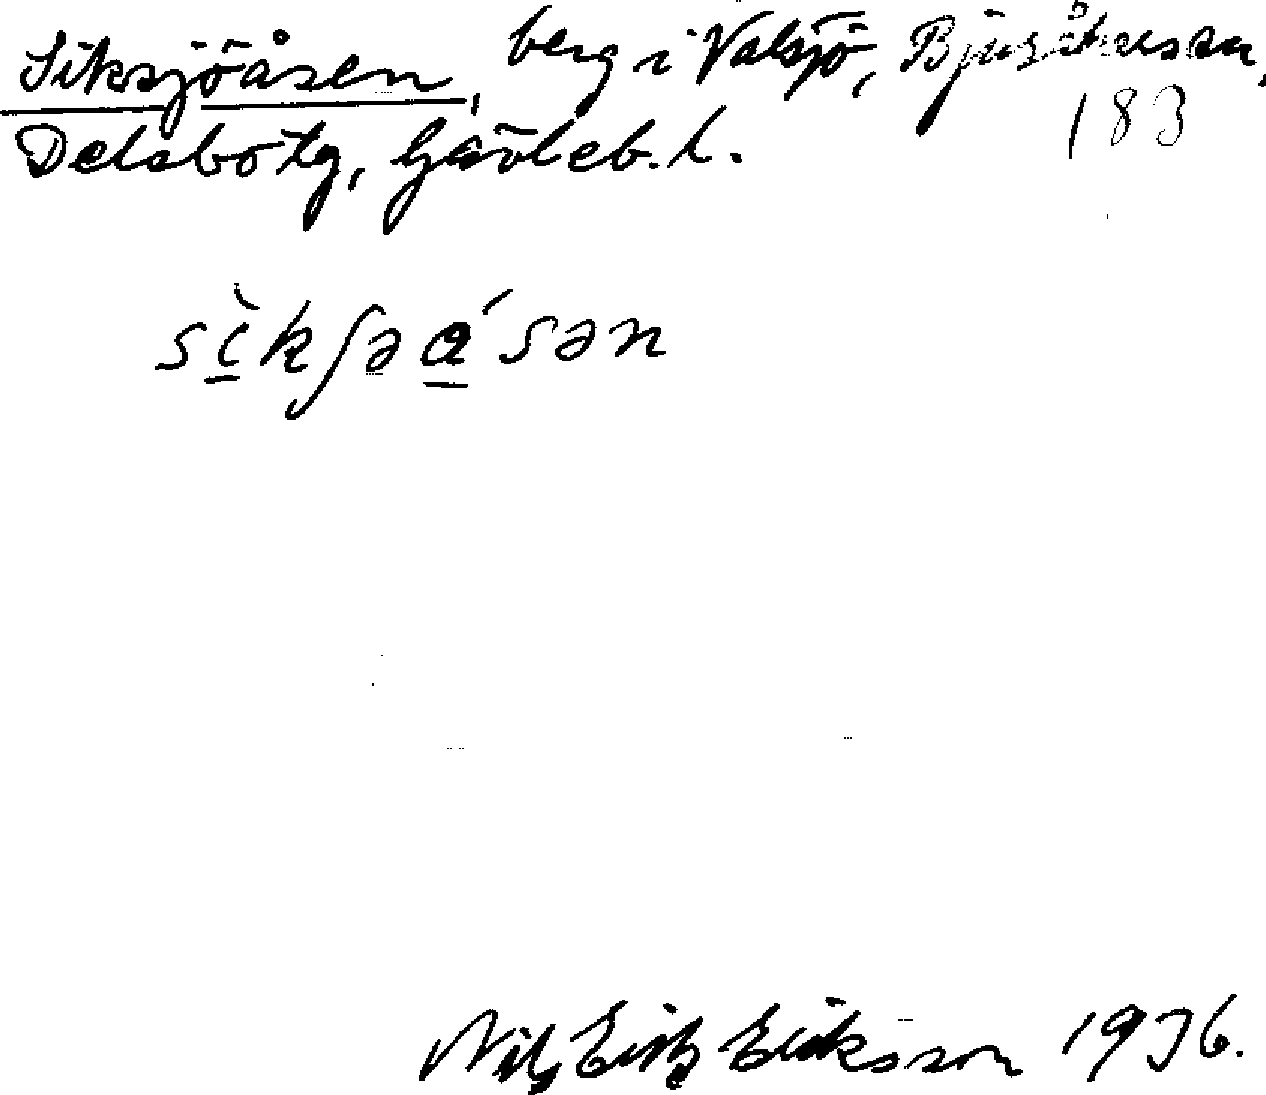 Siksjöåsen, berg i Valsjö, Bjuråkers sn,
183
Delsbo tg, Gävleb. l.
sìkʃəa̱´sən
Nils Erik Eriksson 1936.